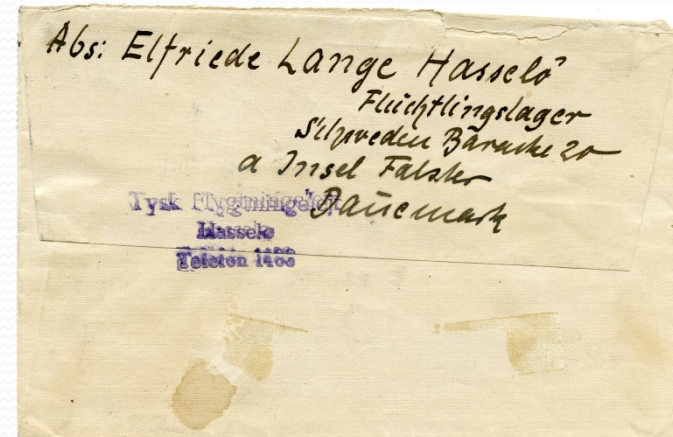 Abs: Elfriede Lange Hasselö
Flüchtlingslager
Schweden Baracke 20
a Insel Falster
Dänemark
Tysk
Hasselø
Telefon 1488